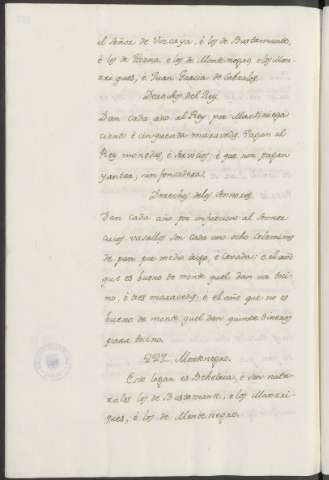 el Señor de Vizcaya, è los de Bustamante,
è los de Velena, e los de Montenegro, e los Man
rriques, è Juan Garcia de Caballos
Derechos del Rey
Dan cada año al Rey por Martiniega
ciento è cinquenta maravedis. Pagan al
Rey monedas, è servicios; è que non pagan
yantar, nin fonsadera.
Derechos delos Señores.
Dan cada año por infurcion al Señor
cuios vasallos son cada uno ocho celemines
de pan por medio trigo, è cevada; e el año
que es bueno de monte quel dan un toci
no, è tres maravedis; e el año que no es
bueno de monte quel dan quince dineros
para tocino.
Montenegro.
Este logar es Behetria, è son natu
rales los de Bustamante, e los Manrri
ques, è los de Montenegro.